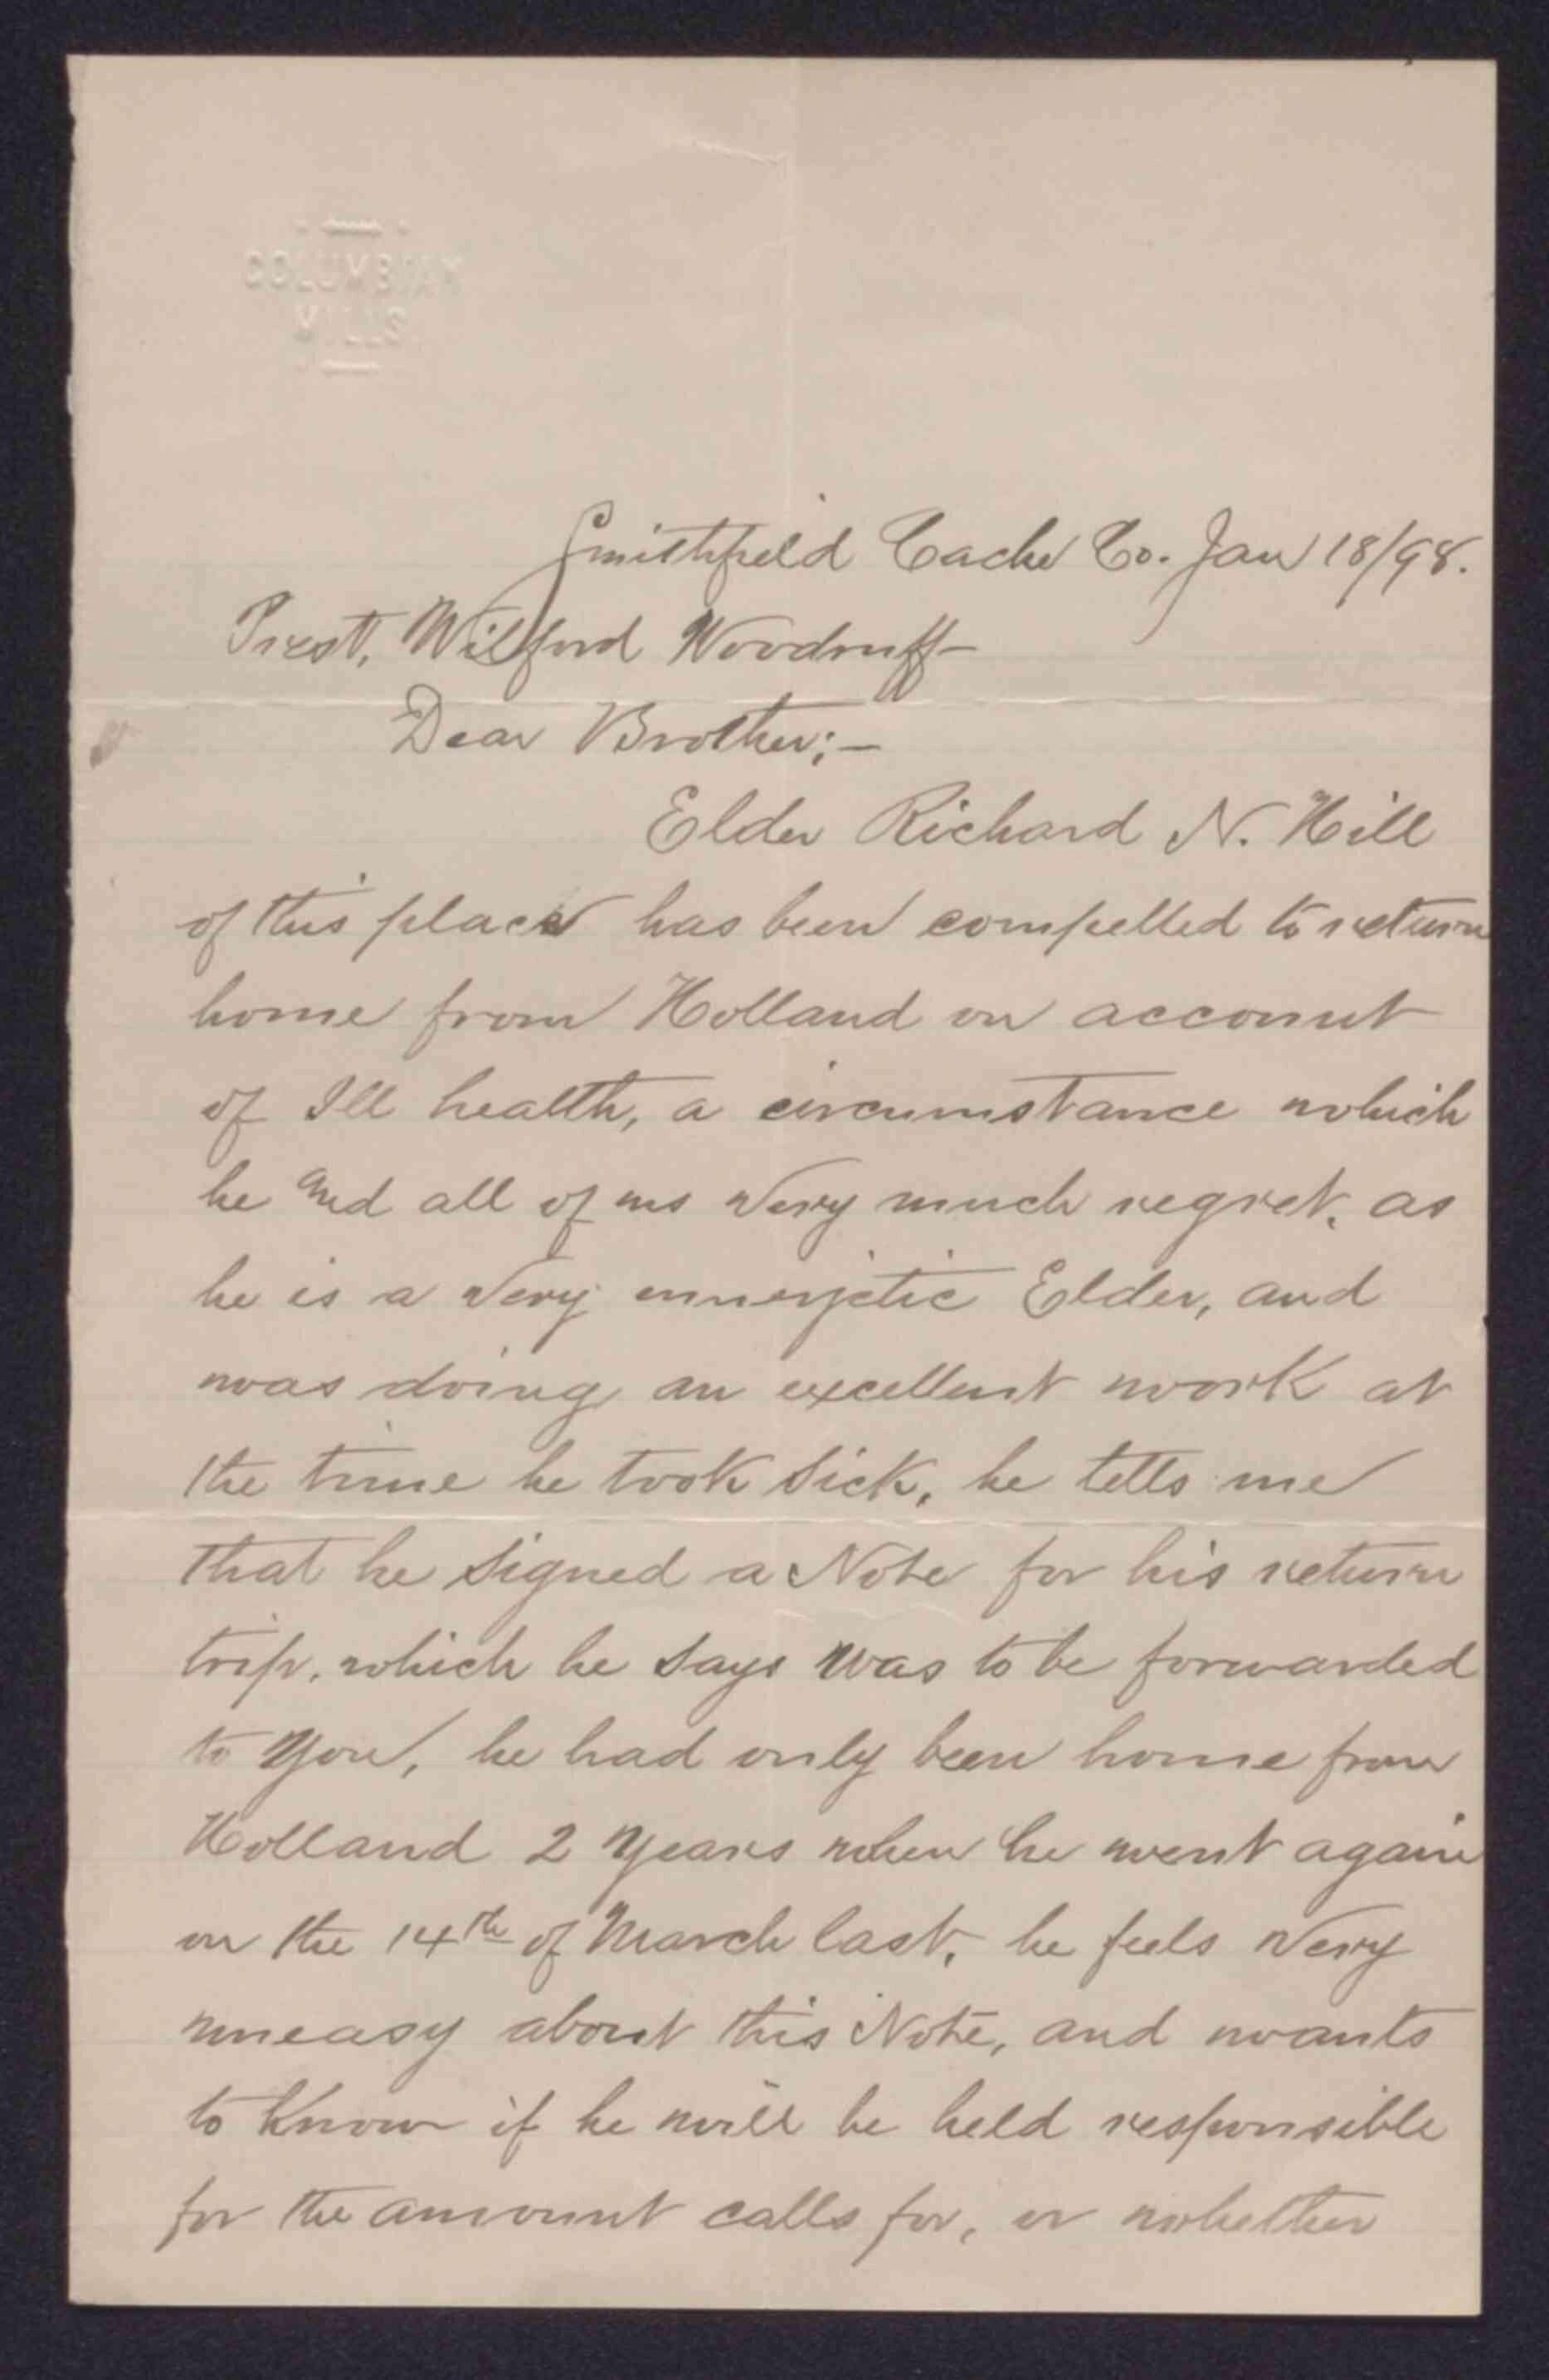 COLUMBIAN
MILLS
Smithfield Cache Co. Jan 18/98.
Prest, Wilford Woodruff
Dear Brother;—
Elder Richard N. Hill
of this place has been compelled to return
home from Holland on account
of Ill health, a circumstance which
he and all of us very much regret, as
he is a very ennerjetic Elder, and
was doing an excellent work at
the time he took sick, he tells me
that he signed a Note for his return
trip, which he says was to be forwarded
to you, he had only been home from
Holland 2 years when he went again
on the 14th of March last, he feels very
uneasy about this Note, and wants
to know if he will be held responsible
for the amount calls for, or whether